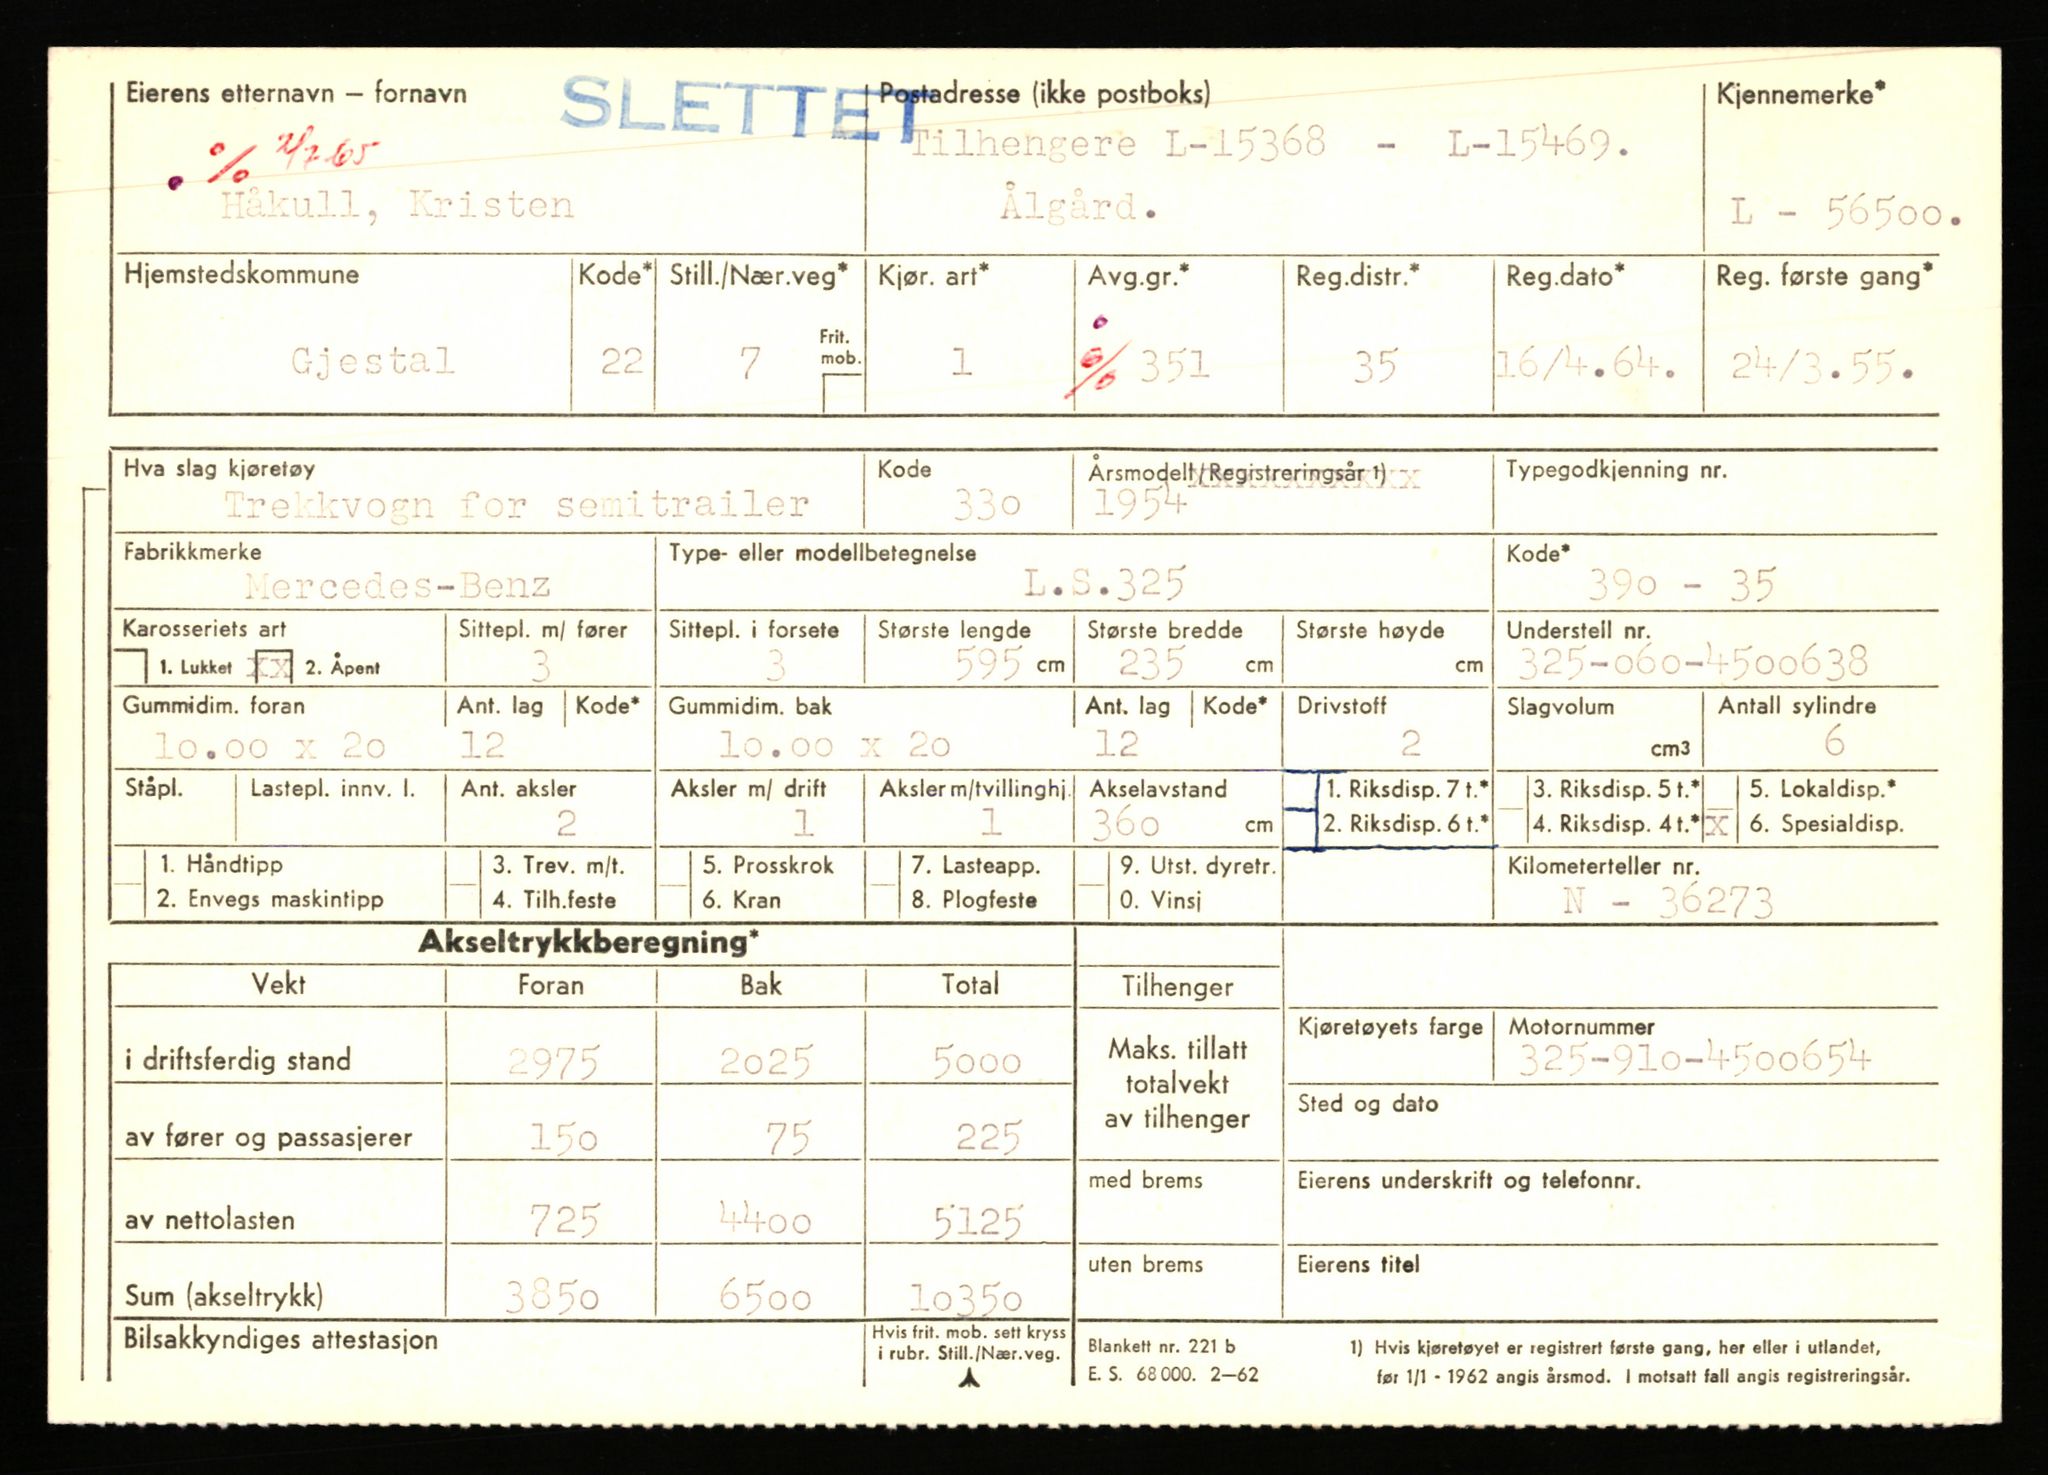 Eierens etternavn – fornavn SLETTET Postadresse (ikke postboks) Kjennemerke*
% 2/7 65 Tilhengere L-15368 - L-15469.
Håkull, Kristen Ålgård. L - 56500.
Hjemstedskommune Kode* Still./Nær.veg* Kjør. art* Avg.gr.* Reg.distr.* Reg.dato* Reg. første gang*
Frit. mob.
Gjestal 22 7 1 % 351 35 16/4.64. 24/3.55.
Hva slag kjøretøy Kode Årsmodell/Registreringsår 1) Typegodkjenning nr.
Trekkvogn for semitrailer 330 1954
Fabrikkmerke Type- eller modellbetegnelse Kode*
Mercedes-Benz L.S.325 390 - 35
Karosseriets art Sittepl. m/ fører Sittepl. i forsete Største lengde Største bredde Største høyde Understell nr.
1. Lukket xx 2. Åpent 3 3 595 cm 235 cm cm 325-060-4500638
Gummidim. foran Ant. lag Kode* Gummidim. bak Ant. lag Kode* Drivstoff Slagvolum Antall sylindre
10.00 x 20 12 10.00 x 20 12 2 cm3 6
Ståpl. Lastepl. innv. l. Ant. aksler Aksler m/ drift Aksler m/tvillinghj. Akselavstand 1. Riksdisp. 7 t.* 3. Riksdisp. 5 t.* 5. Lokaldisp.*
2 1 1 360 cm 2. Riksdisp. 6 t.* 4. Riksdisp. 4 t.* x 6. Spesialdisp.
1. Håndtipp 3. Trev. m/t. 5. Prosskrok 7. Lasteapp. 9. Utst. dyretr. Kilometerteller nr.
2. Envegs maskintipp 4. Tilh.feste 6. Kran 8. Plogfeste 0. Vinsj N - 36273
Akseltrykkberegning*
Vekt Foran Bak Total Tilhenger
Kjøretøyets farge Motornummer
i driftsferdig stand 2975 2025 5000 Maks. tillatt totalvekt av tilhenger 325-910-4500654
Sted og dato
av fører og passasjerer 150 75 225
med brems Eierens underskrift og telefonnr.
av nettolasten 725 4400 5125
uten brems Eierens titel
Sum (akseltrykk) 3850 6500 10350
Bilsakkyndiges attestasjon Hvis frit. mob. sett kryss i rubr. Still./Nær.veg. Blankett nr. 221 b 1) Hvis kjøretøyet er registrert første gang, her eller i utlandet,
E. S. 68 000. 2–62 før 1/1 - 1962 angis årsmod. I motsatt fall angis registreringsår.